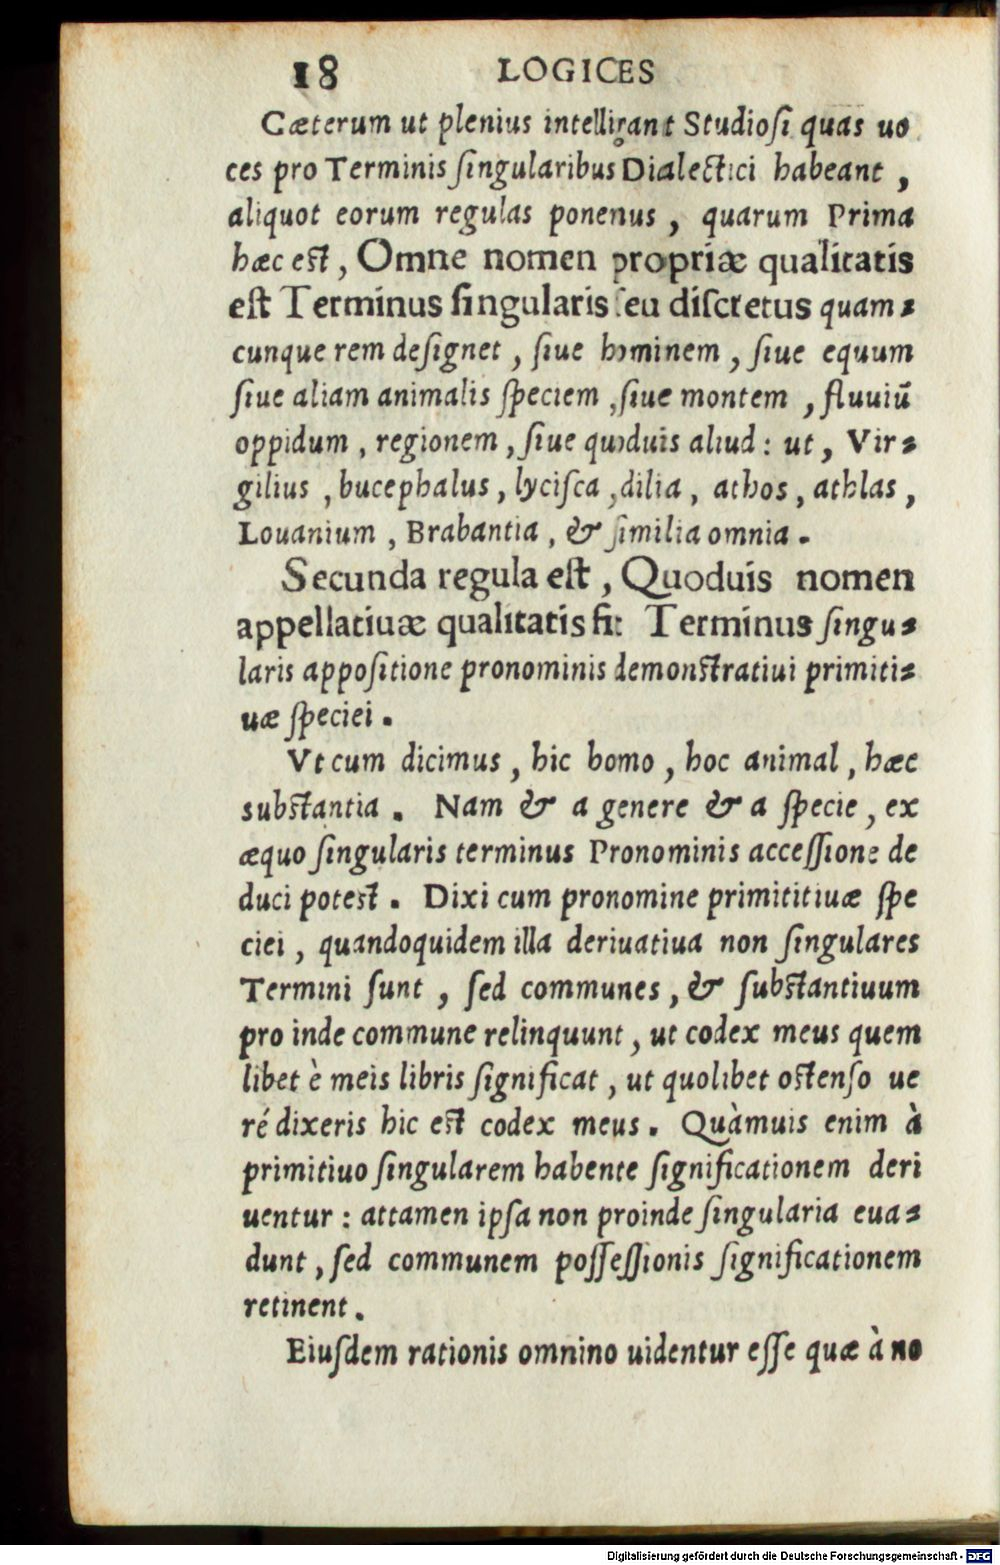 18 LOGICES
Cæterum ut plenius intelligant Studioſi quas uo
ces pro Terminis ſingularibus Dialectici habeant ,
aliquot eorum regulas ponenus , quarum Prima
hæc eſt , Omne nomen propriæ qualitatis
eſt Terminus ſingularis ſeu diſcretus quam⸗
cunque rem deſignet , ſiue hominem , ſiue equum
ſiue aliam animalis ſpeciem , ſiue montem , fluuiū
oppidum , regionem , ſiue quoduis aliud : ut , Vir⸗
gilius , bucephalus , lyciſca , dilia , athos , athlas ,
Louanium , Brabantia , & ſimilia omnia .
Secunda regula eſt , Quoduis nomen
appellatiuæ qualitatis fit Terminus ſingu⸗
laris appoſitione pronominis demonſtratiui primiti⸗
uæ ſpeciei .
Vt cum dicimus , hic homo , hoc animal , hæc
subſtantia . Nam & a genere & a ſpecie , ex
æquo ſingularis terminus Pronominis acceſſione de
duci poteſt . Dixi cum pronomine primititiuæ ſpe
ciei , quandoquidem illa deriuatiua non ſingulares
Termini ſunt , ſed communes , & ſubſtantiuum
pro inde commune relinquunt , ut codex meus quem
libet è meis libris ſignificat , ut quolibet oſtenſo ue
ré dixeris hic eſt codex meus . Quàmuis enim à
primitiuo ſingularem habente ſignificationem deri
uentur : attamen ipſa non proinde ſingularia eua⸗
dunt , ſed communem poſſeſſionis ſignificationem
retinent .
Eiuſdem rationis omnino uidentur eſſe quæ à no
Digitalisierung gefördert durch die Deutsche Forschungsgemeinschaft - DFG